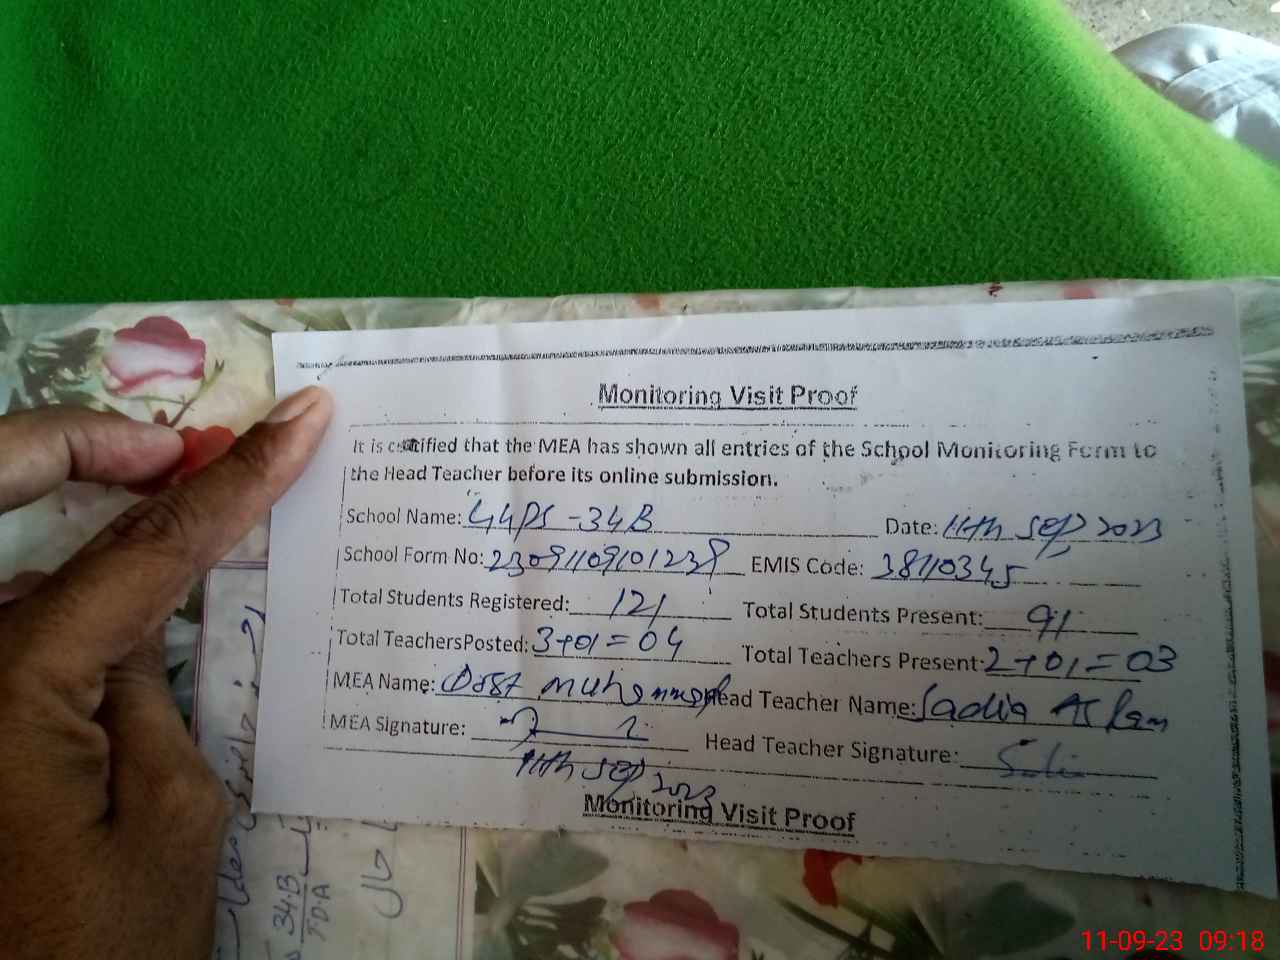 Monitoring Visit Proof
It is certified that the MEA has shown all entries of the School Monitoring Form to
the Head Teacher before its online submission.
School Name: GGPS - 34B Date: 11th Sep 2023
School Form No: 23091109101238 EMIS Code: 38110345
Total Students Registered: 121 Total Students Present: 91
Total TeachersPosted: 3+01=04 Total Teachers Present: 2+01=03
MEA Name: Dost Muhammad Head Teacher Name: Sadia Aslam
MEA Signature: Head Teacher Signature:
11th Sep 2023
Monitoring Visit Proof
34.B
TDA
11-09-23 09:18